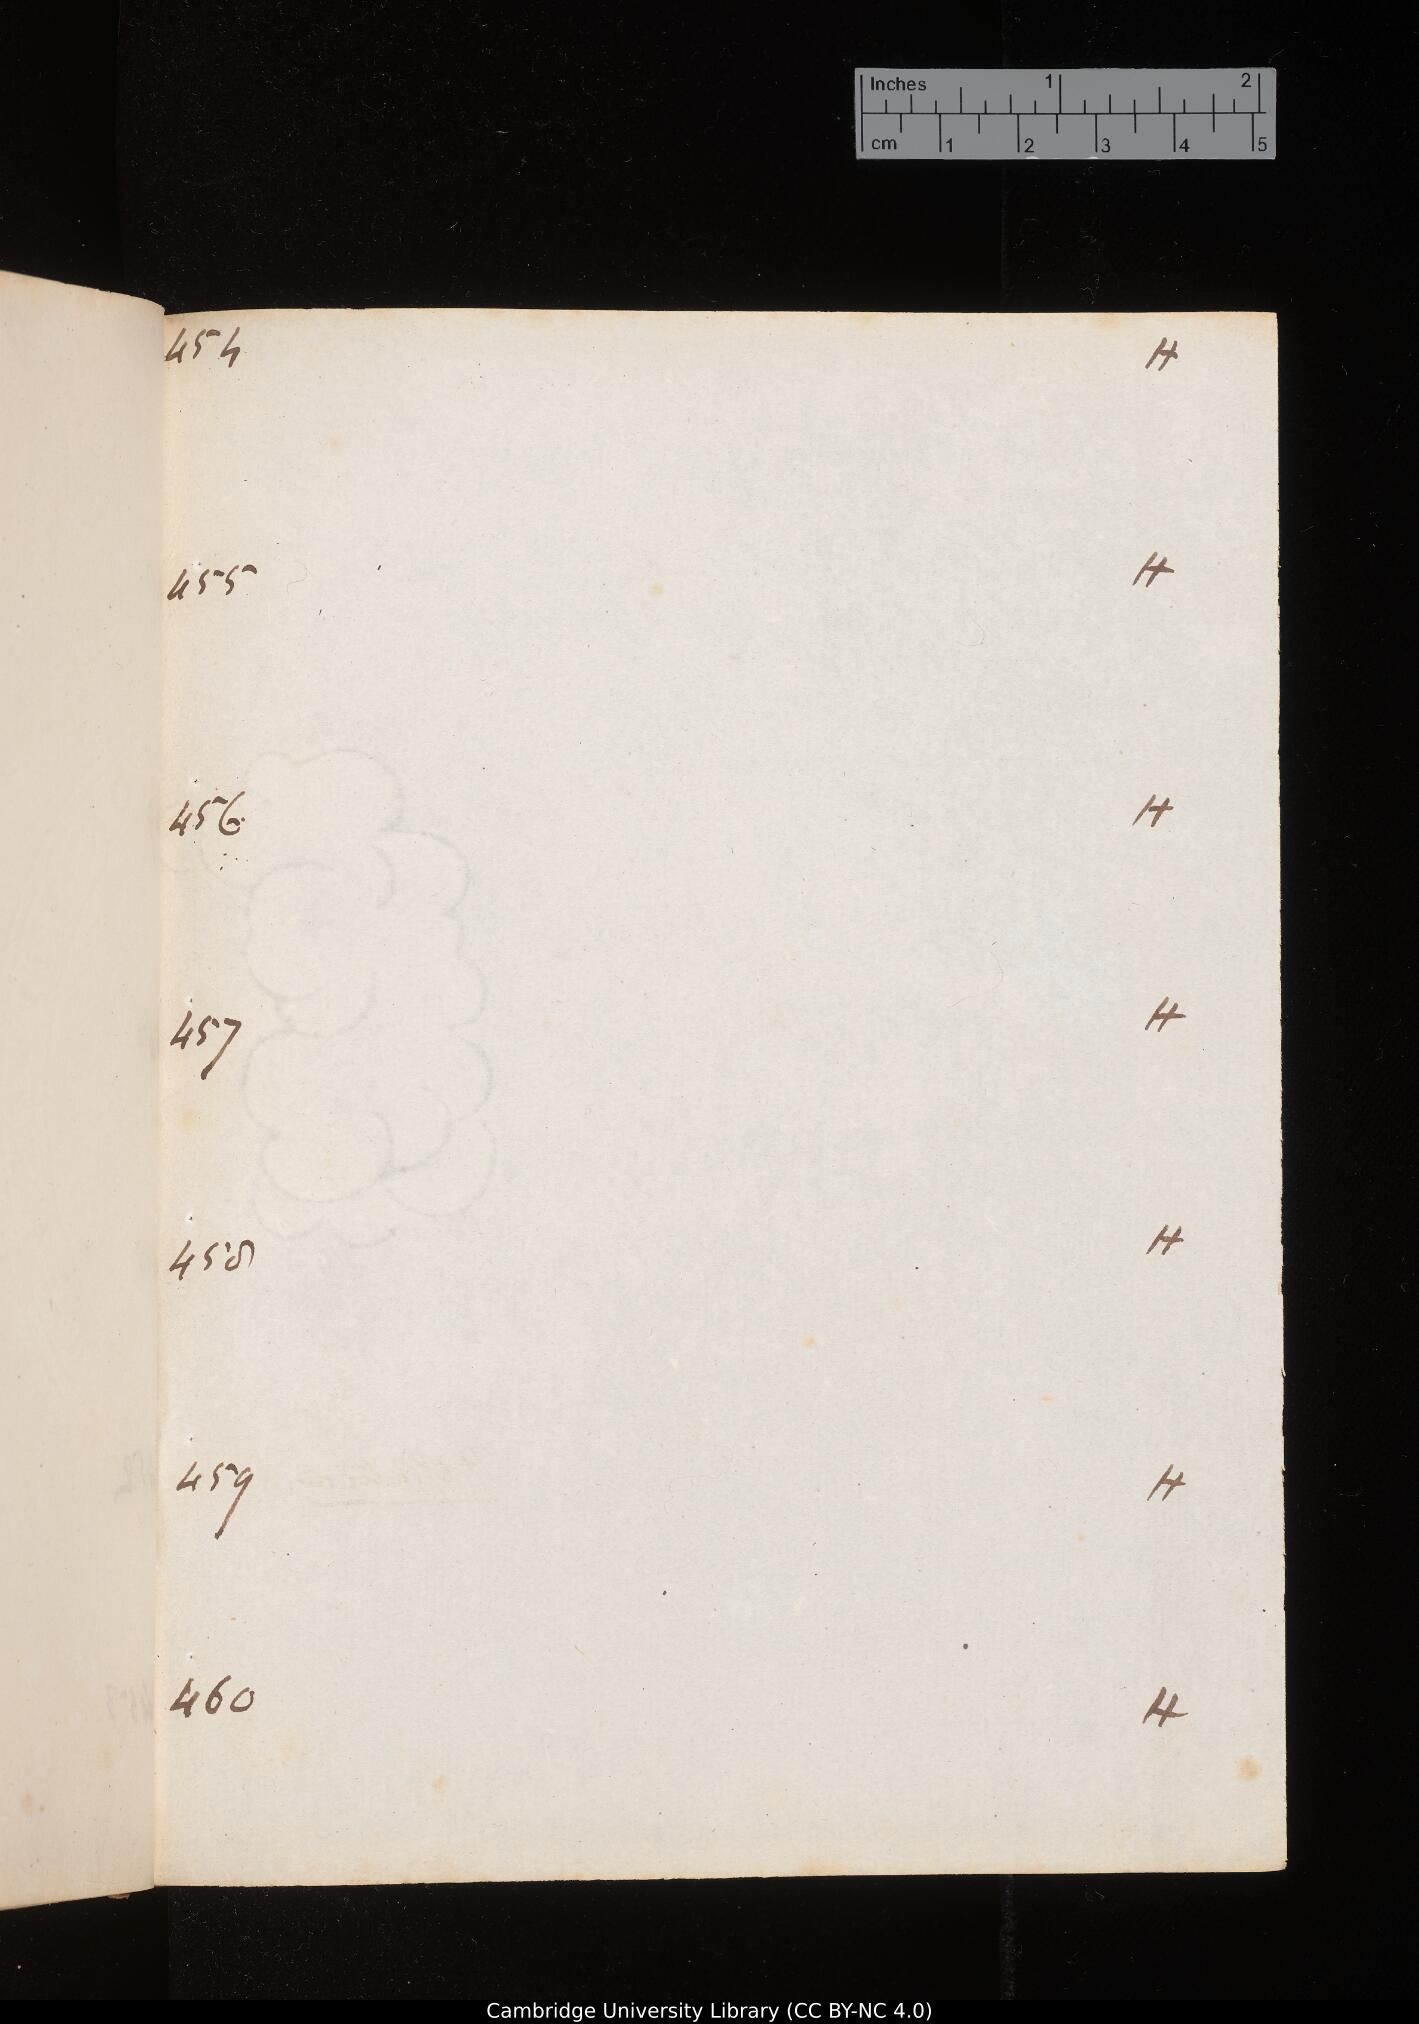 Inches 1 2
cm 1 2 3 4 5
454 H
455 H
456 H
457 H
458 H
459 H
460 H
Cambridge University Library (CC BY-NC 4.0)